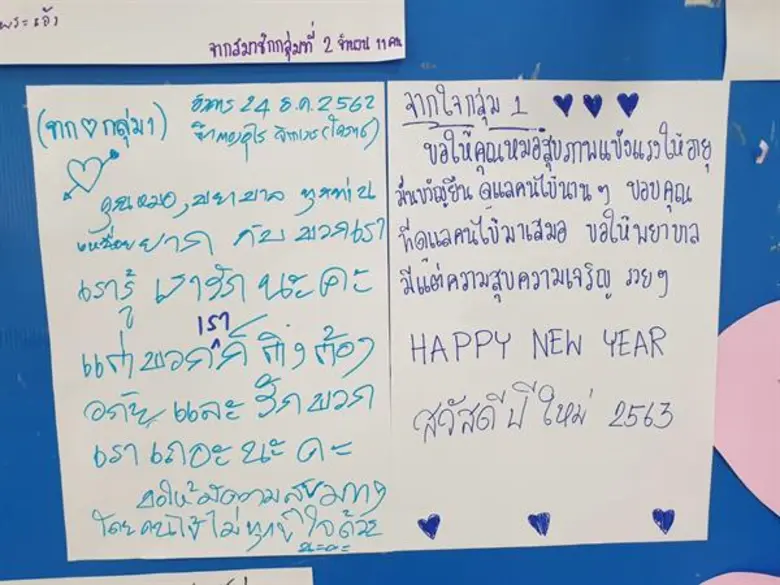 พระแจ้ว
จากสมาชิกกลุ่มที่ 2 จำนวน 11 คน
(จาก♡กลุ่ม1)
อังคาร 24 ธ.ค. 2562
คุณหมอ, พยาบาล ทุกท่าน
เหนื่อยยาก กับ พวกเรา
เรารู้ เรารัก นะคะ
แต่พวกเราก็ยังต้อง
และ รัก พวก
เราเถอะนะคะ
ขอให้มีความ
โดยคนไข้ไม่ทุกข์ใจด้วย
นะคะ
จากใจกลุ่ม 1
ขอให้คุณหมอสุขภาพแข็งแรงให้อายุ
มั่นขวัญยืน ดูแลคนไข้นานๆ ขอบคุณ
ที่ดูแลคนไข้มาเสมอ ขอให้พยาบาล
มีแต่ความสุขความเจริญ รวยๆ
HAPPY NEW YEAR
สวัสดีปีใหม่ 2563